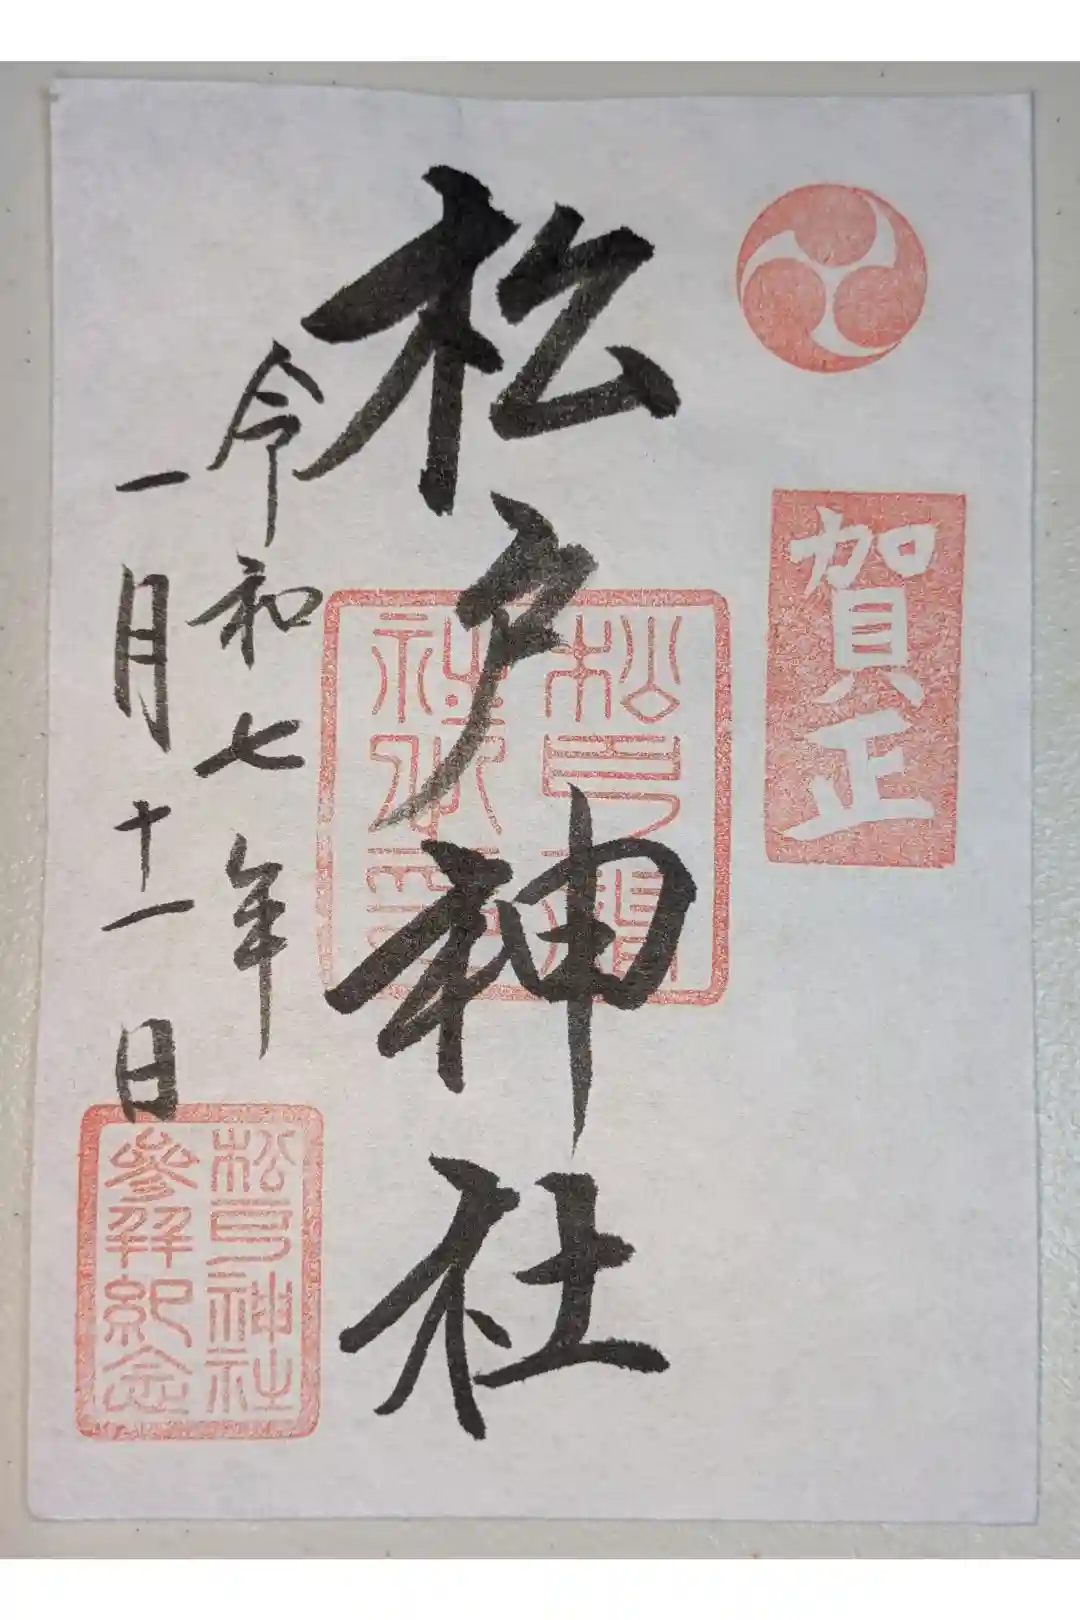 賀正
松戸神社
令和七年
一月十一日
松戸神社
参拝紀念